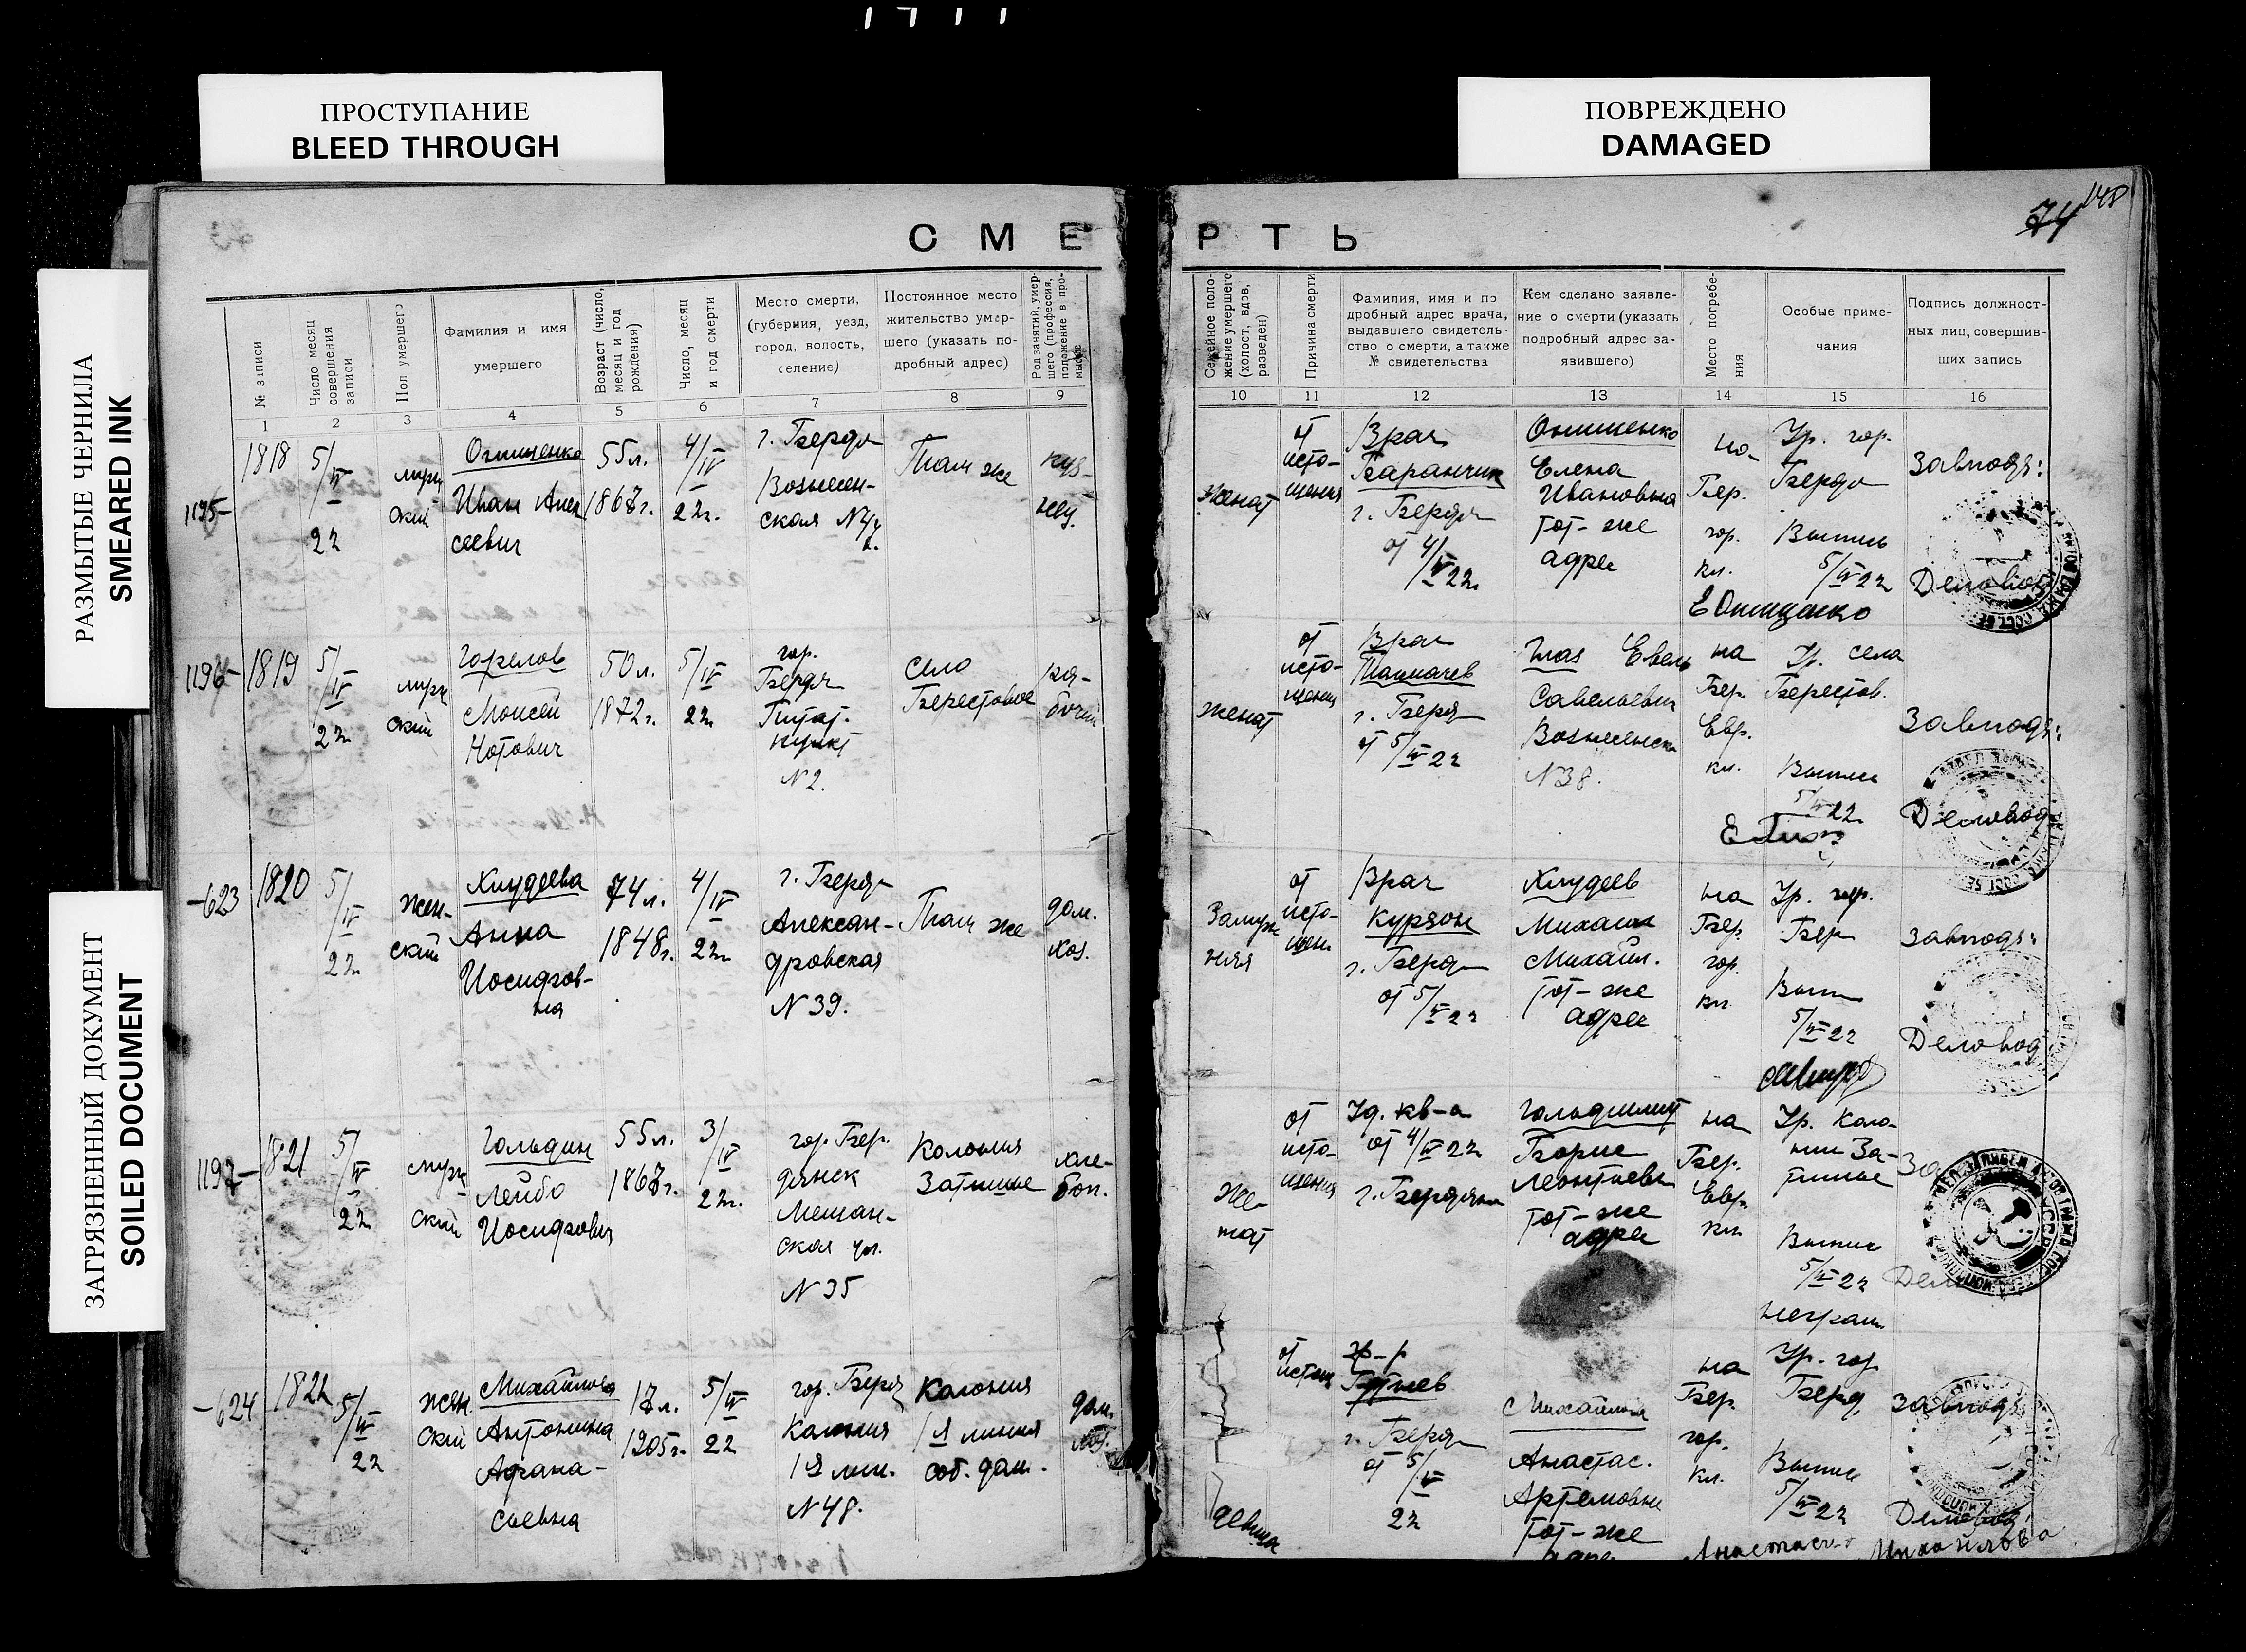 ПРОСТУПАНИЕ
BLEED THROUGH
ПОВРЕЖДЕНО
DAMAGED
РАЗМЫТЫЕ ЧЕРНИЛА
SMEARED INK
ЗАГРЯЗНЕННЫЙ ДОКУМЕНТ
SOILED DOCUMENT
74 148
СМЕРТЬ
№ записи
Число месяц
совершения
записи
Пол умершего
Фамилия и имя
умершего
Возраст (число,
месяц и год
рождения)
Число, месяц
и год смерти
Место смерти,
(губерния, уезд,
город, волость,
селение)
Постоянное место
жительство умер-
шего (указать по-
дробный адрес)
Род занятий, умер-
шего (профессия,
положение в про-
мысле
Семейное поло-
жение умершего
(холост, вдов,
разведен)
Причина смерти
Фамилия, имя и по
дробный адрес врача,
выдавшего свидетель-
ство о смерти, а также
№ свидетельства
Кем сделано заявле-
ние о смерти (указать
подробный адрес за-
явившего)
Место погребе-
ния
Особые приме-
чания
Подпись должност-
ных лиц, совершив-
ших запись
1 2 3 4 5 6 7 8 9 10 11 12 13 14 15 16
1195-
1818
5/IV
22
муж
ский
Онищенко
Иван Алек
сеевич
55 л.
1867 г.
4/IV
22 г.
г. Бердя
Вознесен-
ская
Там же
куз-
нец
женат
от
исто-
щения
Врач
Баранчик
г. Бердя
от 4/IV 22
Онищенко
Елена
Ивановна
тот-же
адрес
на
Бер.
гор.
кл.
Ур. гор.
Бердя
Выпись
5/IV 22
Е Онищенко
Завподъ:
Деловод
1196-
1819
5/IV
22
муж
ский
Горелов
Моисей
Нотович
50 л.
1872 г.
5/IV
22
гор.
Бердя
Питат.
пункт
N 2.
село
Берестовое
ра-
бочий
женат
от
исто-
щения
Врач
Толмачев
г. Бердя
от 5/IV 22
Глаз
Савельевич
N 38.
на
Бер.
Евр.
кл.
Ур. села
Берестов.
Выпись
5/IV 22
Завподъ:
Деловод
-623
1820
5/IV
22
жен-
ский
Хлудеева
Анна
Иосифов-
на
74 л.
1848 г.
4/IV
22
г. Бердя
Алексан-
дровская
N 39.
Там же
дом.
хоз.
Замуж
няя
от
исто-
щен
Врач
Курзон
г. Бердя
от 5/IV 22
Хлудеев
Михаил
Михайл.
тот-же
адрес
на
Бер.
гор.
кл.
Ур. гор.
Бер
Вып
5/IV 22
Завподъ:
Деловод
1197-
1821
5/IV
22
муж
ский
Гольдин
Лейбо
Иосифович
55 л.
1867 г.
3/IV
22 г.
гор. Бер.
дянск
Мещан-
ская ул.
N 35
Колония
Затишье
хле-
боп.
же-
нат
от
исто-
щения
Уд. кв-а
от 4/IV 22
г. Бердянск
Борис
Леонтьев
тот-же
адрес
на
Бер.
Евр.
кл.
Ур. Коло-
нии За-
тишье
Выпись
5/IV 22
неграм
-624
1822
5/IV
22
жен
ский
Михайлова
Антонина
Афана-
сьевна
17 л.
1905 г.
5/IV
22
гор. Бердя
Колония
1я лин.
N 48.
Колония
1я линия
соб. дом.
дом.
хоз.
девица
от
истощ
г. Бердя
от 5/IV
22
Михайлова
Анастас.
Артемовна
тот-же
адрес
на
Бер.
гор.
кл.
Ур. гор
Берд
Выпись
5/IV 22
Завподъ
Деловод
Анастасия Михайлова